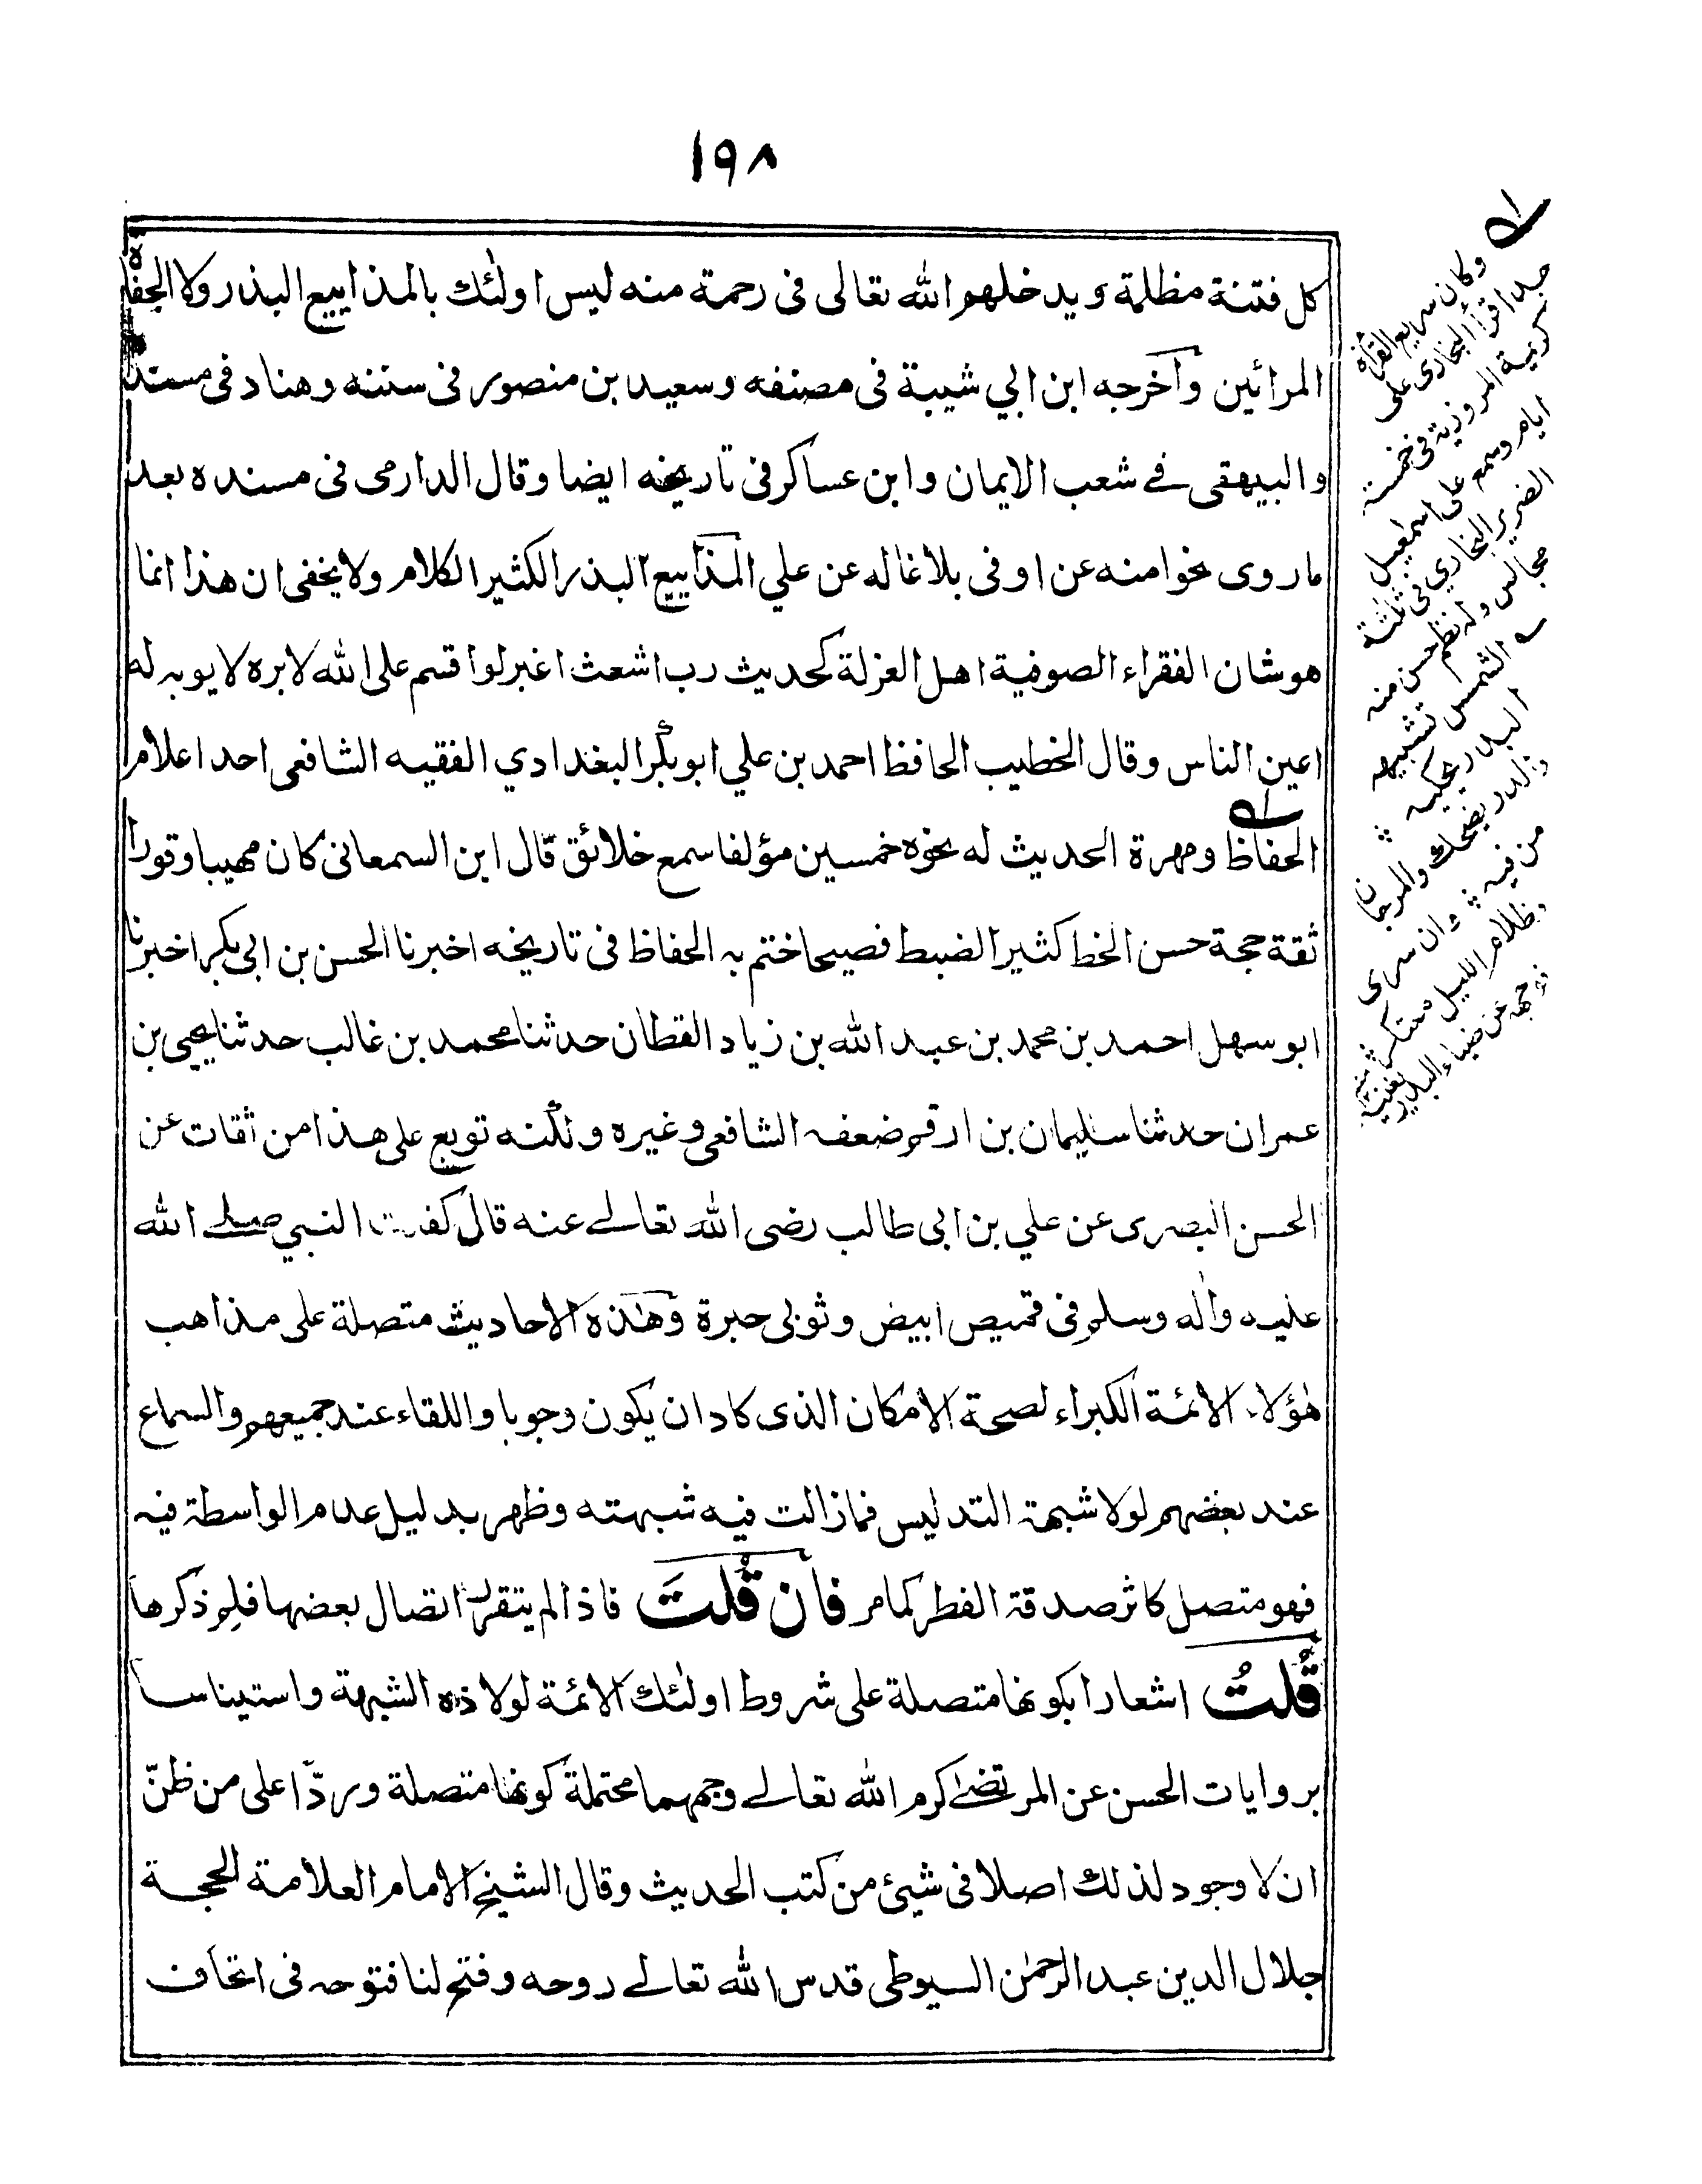 ١٩٨
كل فتنة مظلمة ويدخلهم الله تعالى فى رحمة منه ليس اولئك بالمذاييع البذر ولا الجفاة
المرائين وآخرجه ابن ابي شيبة فى مصنفه وسعيد بن منصور فى سننه وهناد فى مسنده
والبيهقى فے شعب الايمان وابن عساكر فى تاريخه ايضا وقال الدارمى فى مسنده بعد
ما روى نحوا منه عن اوفى بلاغا له عن علي المذاييع البذر الكثير الكلام ولا يخفى ان هذا انما
هو شان الفقراء الصوفية اهل العزلة كحديث رب اشعث اغبر لوا قسم على الله لابره لا يوبه له
اعين الناس وقال الخطيب الحافظ احمد بن علي ابو بكر البغدادي الفقيه الشافعى احد اعلام
الحفاظ ومهرة الحديث له نحوه خمسين مؤلفا سمع خلائق قال ابن السمعانى كان مهيبا وقورا
ثقة حجة حسن الخط كثير الضبط فصيحا ختم به الحفاظ فى تاريخه اخبرنا الحسن بن ابى بكر اخبرنا
ابو سهل احمد بن محمد بن عبد الله بن زياد القطان حدثنا محمد بن غالب حدثنا يحيى بن
عمران حدثنا سليمان بن ارقم ضعفه الشافعى وغيره ولكنه توبع على هذا من ثقات عن
الحسن البصرى عن علي بن ابى طالب رضى الله تعالے عنه قال كفنت النبي صلے الله
عليه واله وسلم فى قميص ابيض وثوبى حبرة وهذه الاحاديث متصلة على مذاهب
هؤلاء الائمة الكبراء لصحة الامكان الذى كاد ان يكون وجوبا واللقاء عند جميعهم والسماع
عند بعضهم لولا شبهة التدليس فما زالت فيه شبهته وظهر بدليل عدم الواسطة فيه
فهو متصل كاثر صدقة الفطر كما مر فان قُلتَ فاذا لم يتقرر اتصال بعضها فلم ذكرها
قُلتُ اشعارا بكونها متصلة على شروط اولئك الائمة لولا ذه الشبهة واستيناسا
بروايات الحسن عن المرتضے كرم الله تعالے وجهها محتملة كونها متصلة وردّا على من ظنّ
ان لا وجود لذلك اصلا فى شيئ من كتب الحديث وقال الشيخ الامام العلامة الحجة
جلال الدين عبد الرحمن السيوطى قدس الله تعالے روحه وفتح لنا فتوحه فى اتحاف
وكان سريع القرأة
جدا قرأ البخارى على
كريمة المروزية فى خمسة
ايام وسمع على اسمعيل
الضرير البخاري فى ثلثة
مجالس وله نظم حسن منه
الشمس تشبهه
البدر يحكيه
والدر يضحك والمرجان
من فيه وان سرى
وظلام الليل معتكر
فوجهه عن ضياء البدر يغنيه